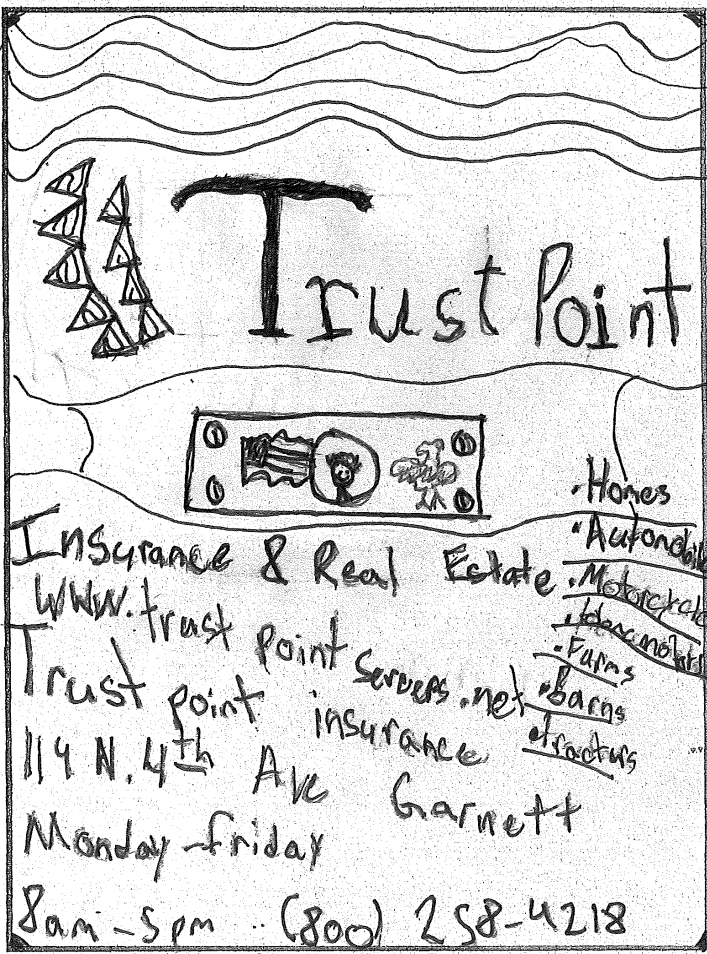 Trust Point
Insurance & Real Estate
www.trust point servers.net
Trust point insurance
114 N. 4th Ave Garnett
Monday-friday
8am-5pm (800) 258-4218
• Homes
• Automobile
• Motorcycle
• Farms
• Barns
• tractors